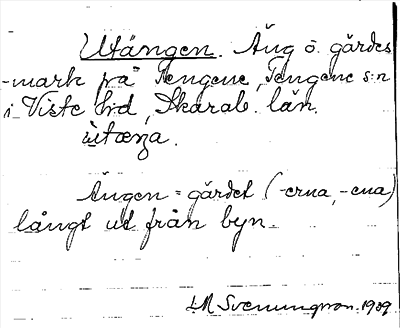 Utängen. Äng o. gärdes
-mark på Tengene, Tengene s:n
i Viste hd, Skarab. län.
ùtæŋa.
Ängen = gärdet (-erna, -ena)
långt ut från byn.
LM Svenungsson. 1939